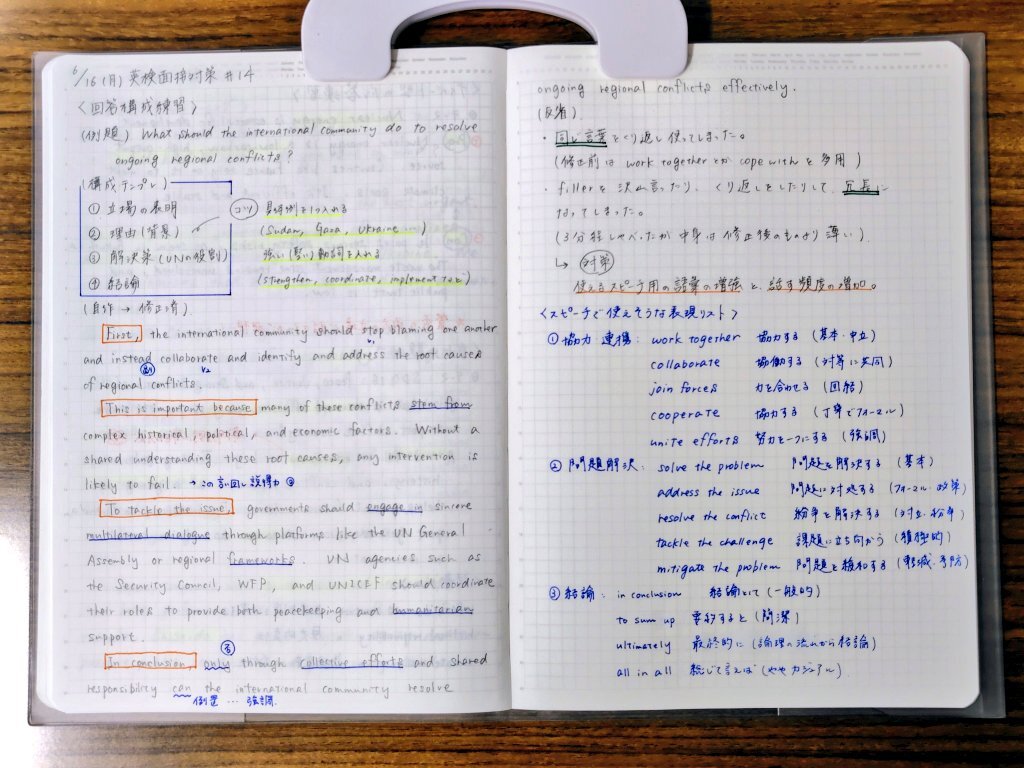 6/16 (月) 英検面接対策 #14
〈回答構成練習〉
(例題) What should the international community do to resolve
ongoing regional conflicts?
(構成テンプレ)
① 立場の表明
② 理由 (背景)
③ 解決策 (UNの役割)
④ 結論
コツ 具体例を1つ入れる
(Sudan, Gaza, Ukraine …)
強い (賢い) 動詞を入れる
(strengthen, coordinate, implement など)
(自作 → 修正済)
First, the international community should stop blaming one another
V1
and instead collaborate and identify and address the root causes
副 V2
of regional conflicts.
This is important because many of these conflicts stem from
complex historical, political, and economic factors. Without a
shared understanding these root causes, any intervention is
likely to fail. → この言い回し説得力
To tackle the issue, governments should engage in sincere
multilateral dialogue through platforms like the UN General
Assembly or regional frameworks. UN agencies such as
the Security Council, WFP, and UNICEF should coordinate
their roles to provide both peacekeeping and humanitarian
support.
否
In conclusion, only through collective efforts and shared
responsibility can the international community resolve
倒置 … 強調.
ongoing regional conflicts effectively.
(反省)
・同じ言葉をくり返し使ってしまった。
(修正前は work together とか cope with を多用)
・fillerを沢山言ったり、くり返しをしたりして、冗長に
なってしまった。
(3分程しゃべったが中身は修正後のものより薄い).
↳ 対策
使えるスピーチ用の語彙の増強と、話す頻度の増加。
〈スピーチで使えそうな表現リスト〉
① 協力 連携: work together 協力する (基本・中立)
collaborate 協働する (対等に共同)
join forces 力を合わせる (団結)
cooperate 協力する (丁寧でフォーマル)
unite efforts 努力を一つにする (強調)
② 問題解決: solve the problem 問題を解決する (基本)
address the issue 問題に対処する (フォーマル・政策)
resolve the conflict 紛争を解決する (対立・紛争)
tackle the challenge 課題に立ち向かう (積極的)
mitigate the problem 問題を緩和する (軽減・予防)
③ 結論: in conclusion 結論として (一般的)
to sum up 要約すると (簡潔)
ultimately 最終的に (論理の流れから結論)
all in all 総じて言えば (ややカジュアル).